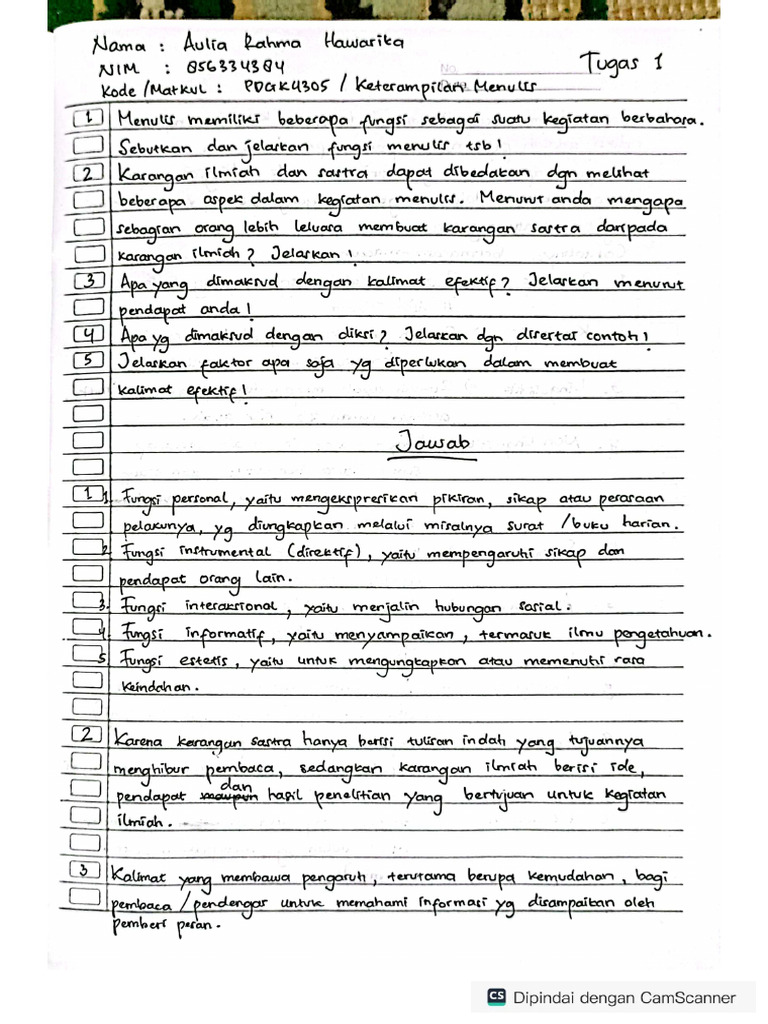 Nama : Aulia Rahma Hawarika
NIM : 856334384
Tugas 1
No.
Kode/Matkul : PDGK4305 / Keterampilan Menulis
1 Menulis memiliki beberapa fungsi sebagai suatu kegiatan berbahasa.
Sebutkan dan jelaskan fungsi menulis tsb!
2 Karangan ilmiah dan sastra dapat dibedakan dgn melihat
beberapa aspek dalam kegiatan menulis. Menurut anda mengapa
sebagian orang lebih leluasa membuat karangan sastra daripada
karangan ilmiah? Jelaskan!
3 Apa yang dimaksud dengan kalimat efektif? Jelaskan menurut
pendapat anda!
4 Apa yg dimaksud dengan diksi? Jelaskan dgn disertai contoh!
5 Jelaskan faktor apa saja yg diperlukan dalam membuat
kalimat efektif!
Jawab
1 1. Fungsi personal, yaitu mengekspresikan pikiran, sikap atau perasaan
pelakunya, yg diungkapkan melalui misalnya surat /buku harian.
2. Fungsi instrumental (direktif), yaitu mempengaruhi sikap dan
pendapat orang lain.
3. Fungsi interaksional, yaitu menjalin hubungan sosial.
4. Fungsi informatif, yaitu menyampaikan, termasuk ilmu pengetahuan.
5. Fungsi estetis, yaitu untuk mengungkapkan atau memenuhi rasa
keindahan.
2 Karena karangan sastra hanya berisi tulisan indah yang tujuannya
menghibur pembaca, sedangkan karangan ilmiah berisi ide,
pendapat maupun dan hasil penelitian yang bertujuan untuk kegiatan
ilmiah.
3 Kalimat yang membawa pengaruh, terutama berupa kemudahan, bagi
pembaca/pendengar untuk memahami informasi yg disampaikan oleh
pemberi pesan.
CS Dipindai dengan CamScanner